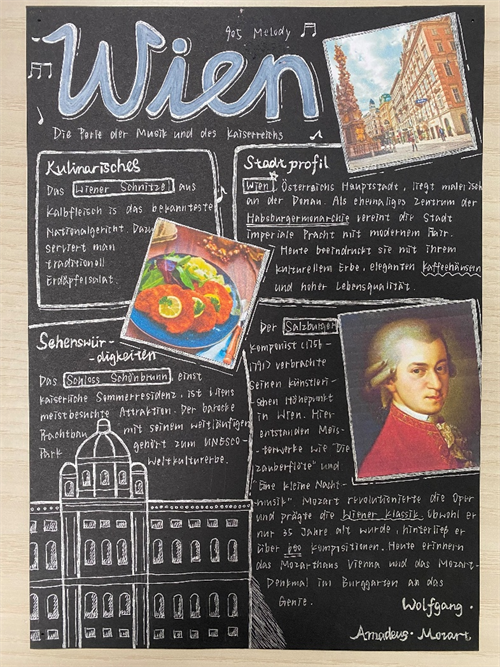 905 Melody
Wien
Die Perle der Musik und des Kaiserreichs
Kulinarisches
Das Wiener Schnitzel aus
Kalbfleisch ist das bekannteste
Nationalgericht. Dazu
serviert man
traditionell
Erdäpfelsalat.
Stadtprofil
Wien, Österreichs Hauptstadt, liegt malerisch
an der Donau. Als ehemaliges Zentrum der
Habsburgermonarchie vereint die Stadt
imperiale Pracht mit modernem Flair.
Heute beeindruckt sie mit ihrem
kulturellem Erbe, eleganten Kaffeehäusern
und hoher Lebensqualität.
Sehenswür-
-digkeiten
Das Schloss Schönbrunn, einst
kaiserliche Sommerresidenz, ist Wiens
meistbesuchte Attraktion. Der barocke
Prachtbau mit seinem weitläufigen
Park gehört zum UNESCO-
Weltkulturerbe.
Der Salzburger
Komponist (1756-
1791) verbrachte
seinen künstleri-
schen Höhepunkt
in Wien. Hier
entstanden Meis-
-terwerke wie "Die
Zauberflöte" und
"Eine kleine Nacht-
-musik". Mozart revolutionierte die Oper
und prägte die Wiener Klassik. Obwohl er
nur 35 Jahre alt wurde, hinterließ er
über 600 Kompositionen. Heute erinnern
das Mozarthaus Vienna und das Mozart-
Denkmal im Burggarten an das
Genie.
Wolfgang.
Amadeus. Mozart